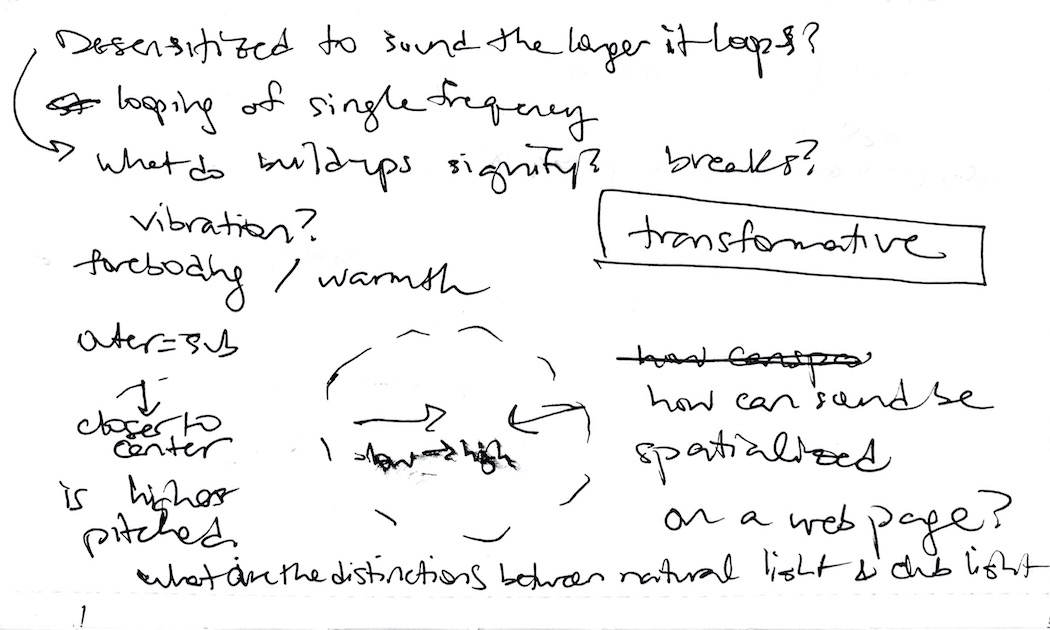 Desensitized to sound the longer it loops?
looping of single frequency
what do build-ups signify? breaks?
vibration?
transformative
foreboding / warmth
outer = sub
closer to
center
is higher
pitched
low → high
how can sound be
spatialized
on a web page?
what are the distinctions between natural light & club light